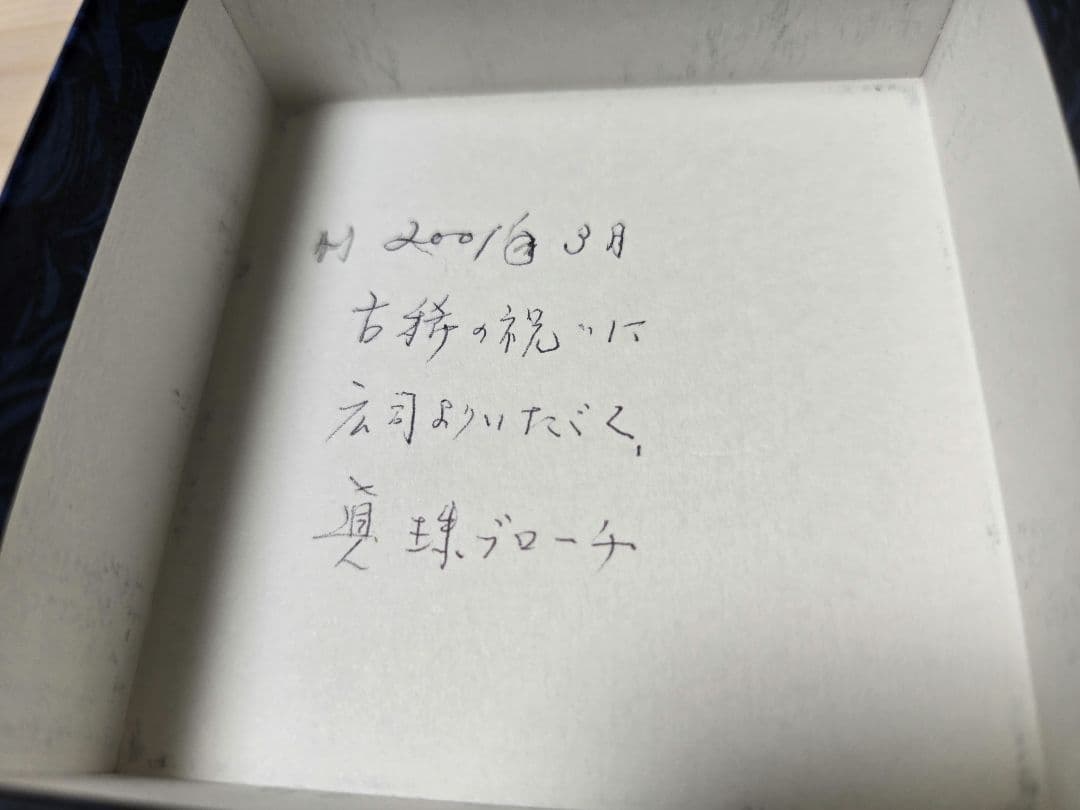 H 2001年3月
古稀の祝いに
広司よりいただく、
真珠ブローチ